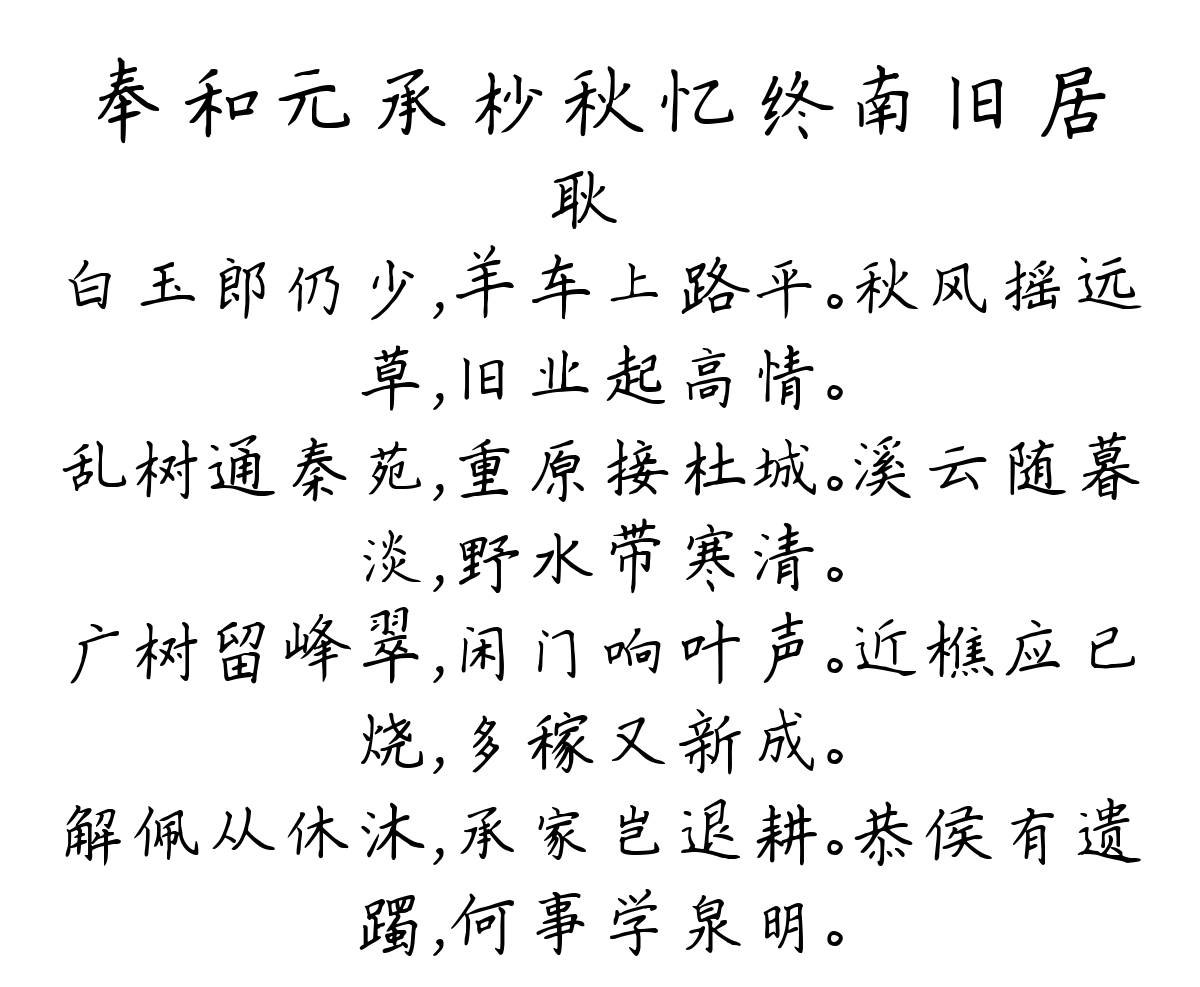 奉和元承杪秋忆终南旧居
耿
白玉郎仍少,羊车上路平。秋风摇远
草,旧业起高情。
乱树通秦苑,重原接杜城。溪云随暮
淡,野水带寒清。
广树留峰翠,闲门响叶声。近樵应已
烧,多稼又新成。
解佩从休沐,承家岂退耕。恭侯有遗
躅,何事学泉明。